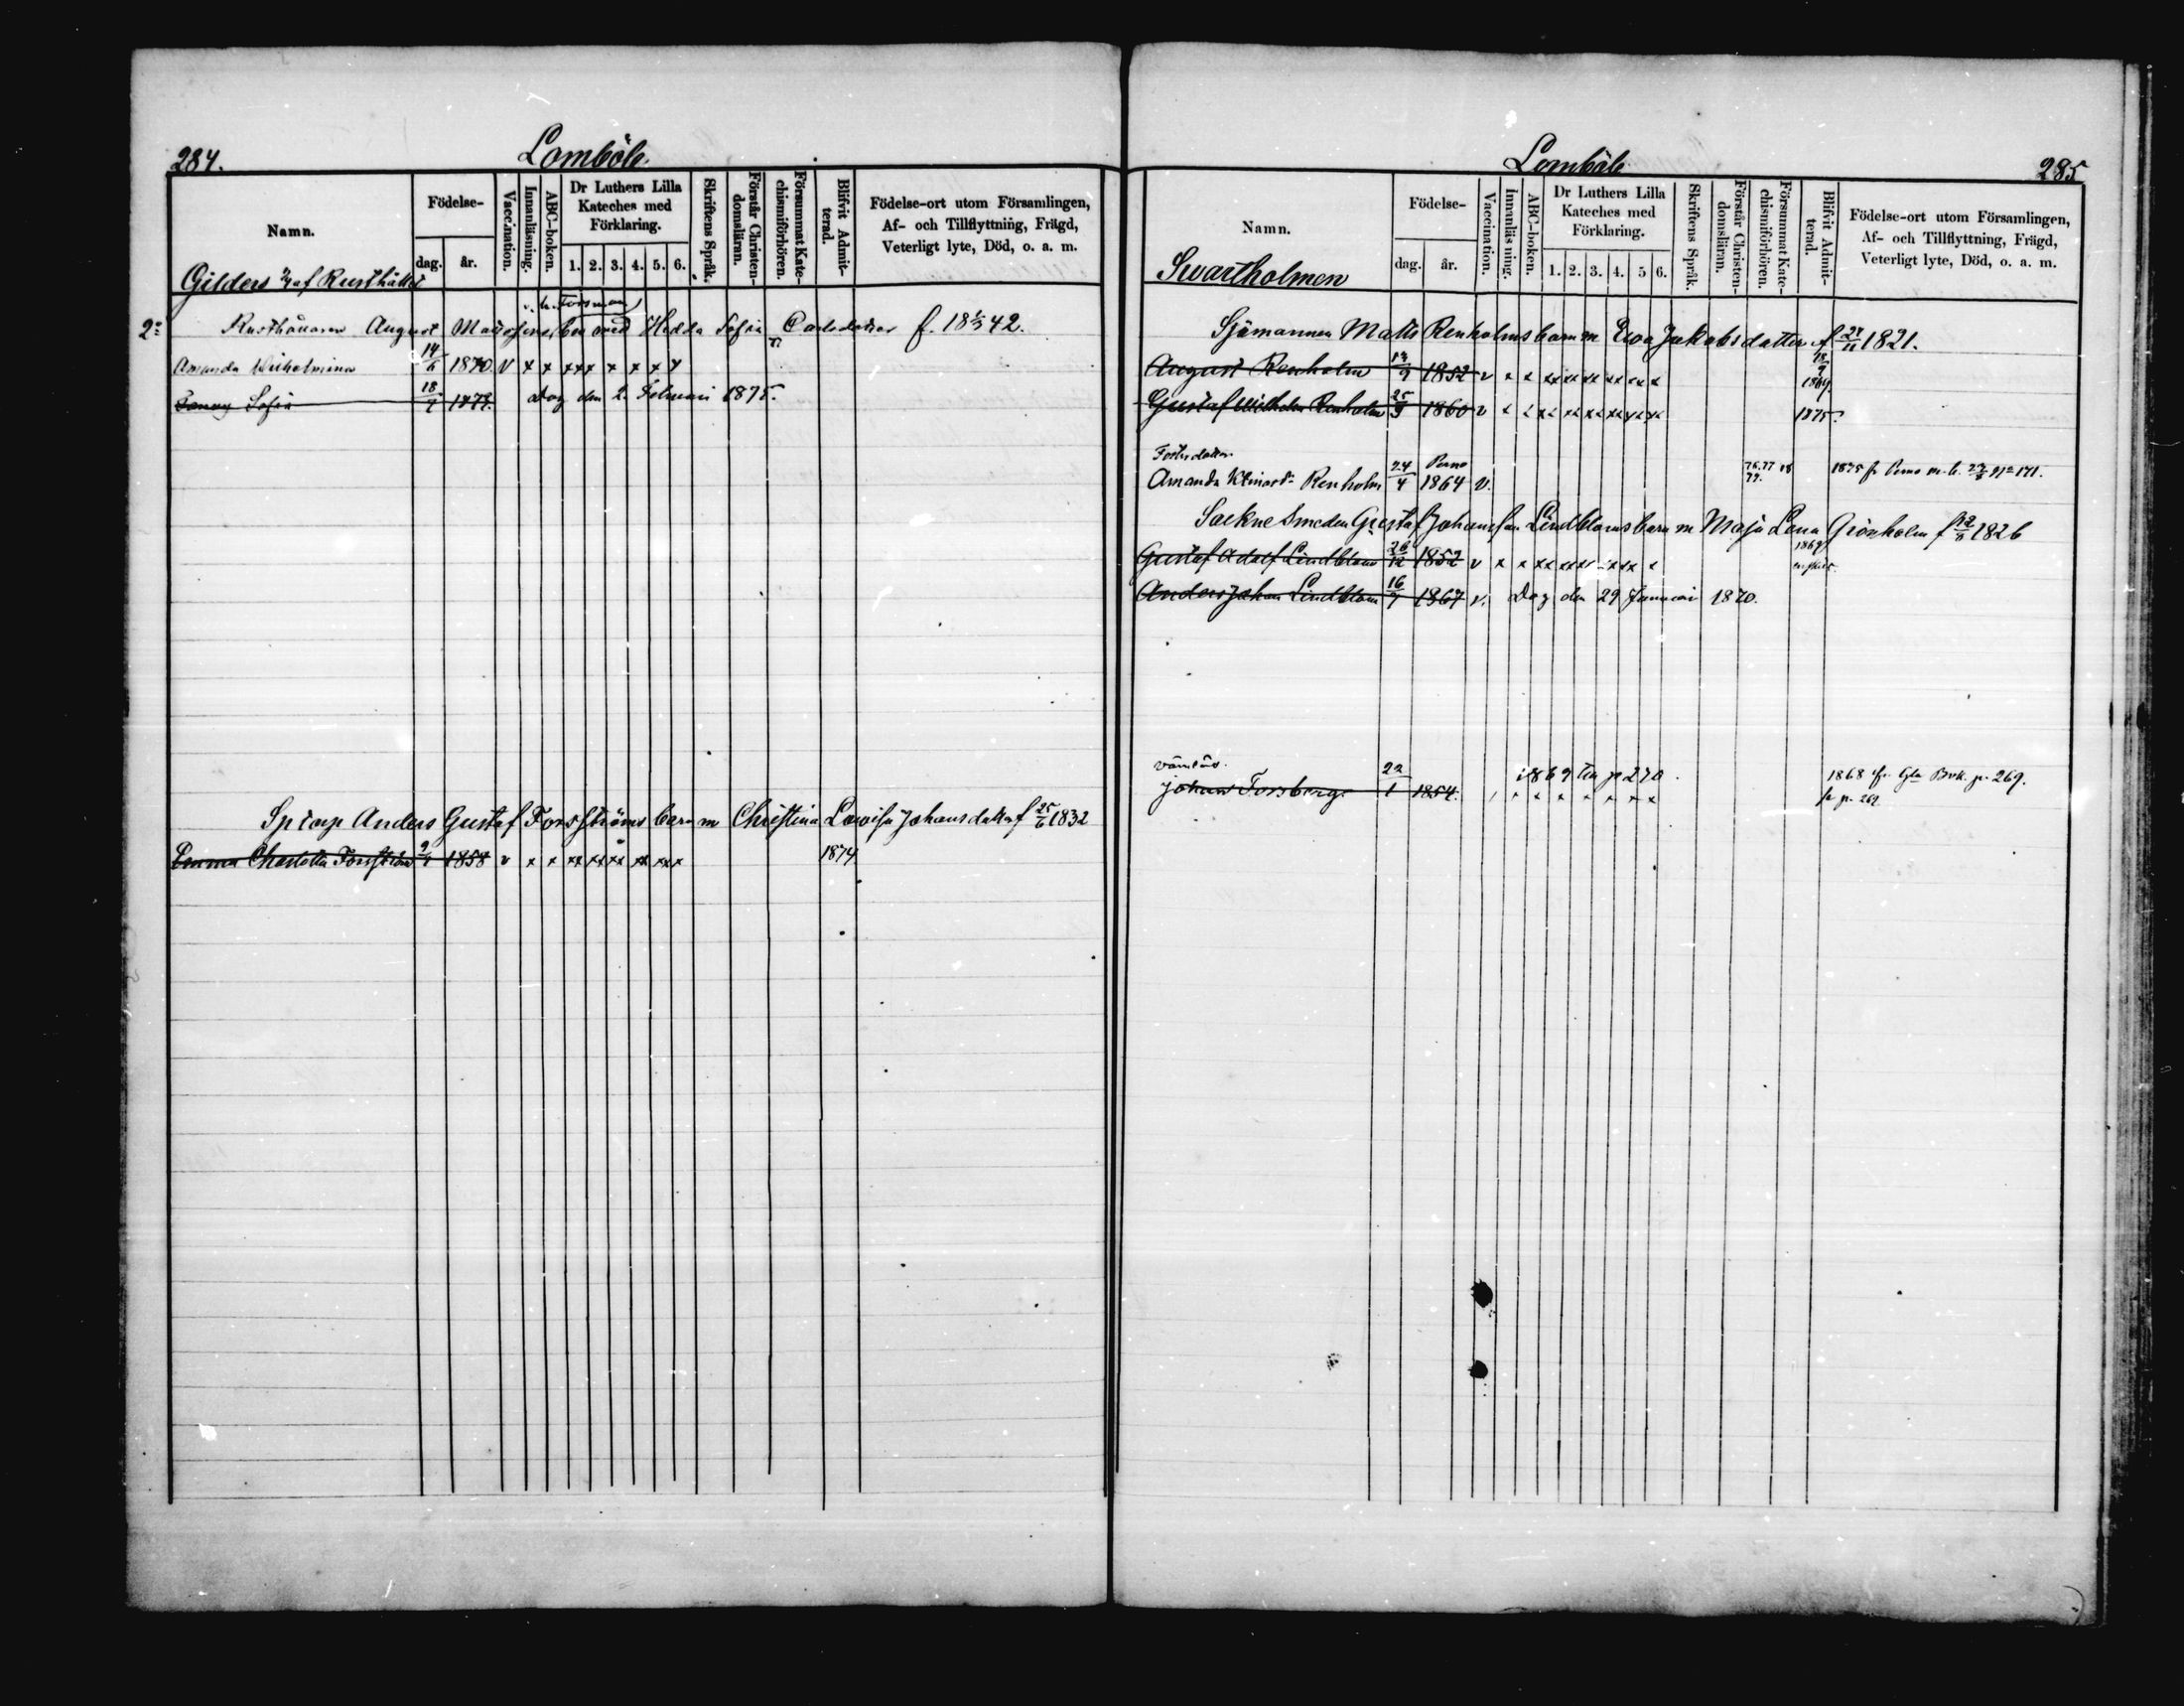 284.
Lomböle.
Namn.
Födelse-
dag.
år.
Vaccination.
Innanläsning.
ABC-boken.
Dr Luthers Lilla
Kateches med
Förklaring.
1. 2. 3. 4. 5. 6.
Skriftens Språk.
Förstår Christen-
domsläran.
Försummat Kate-
chismiförhören.
Blifvit Admit-
terad.
Födelse-ort utom Församlingen,
Af- och Tillflyttning, Frägd,
Veterligt lyte, Död, o. a. m.
Gilders af Rusthållet
Forsman
2:
Rusthållaren August Matssons barn med Hedda Sofia Carlsdotter f. 18 42.
Amanda Wilhelmina 14/6 1870 v x x xxx x x x x
Fanny Sofia 18/4 Dog den 2. Februari 1875.
Anders Gustaf Forsströms barn m Christina Lovisa Johansdotter f 25/6 1832
Emma Charlotta Forsström 1858 v x x xx xx xx xx xxx 1874
285
Lomböle
Namn.
Födelse-
dag.
år.
Vaccination.
Innanläsning.
ABC-boken.
Dr Luthers Lilla
Kateches med
Förklaring.
1. 2. 3. 4. 5 6.
Skriftens Språk.
Förstår Christen-
domsläran.
Försummat Kate-
chismiförhören.
Blifvit Admit-
terad.
Födelse-ort utom Församlingen,
Af- och Tillflyttning, Frägd,
Veterligt lyte, Död, o. a. m.
Swartholmen
Sjömannen Matts Renholms barn m Ewa Jakobsdotter f 1821.
August Renholm 1852 v x x xx xx xx xx xx x 1869.
Gustaf Wilhelm Renholm 25 1860 v 1875.
Fosterdotter
Perno
Amanda Renholm 24/4 1864 v. 76.77 78 79. 1875 fr Perno
Sockne Smeden Gustaf Johansson Lindbloms barn m Maja Lena Grönholm f 1826
Gustaf Adolf Lindblom 26/12 1852 v x x xx xx 1869
Anders Johan Lindblom 16/7 1867 v. Dog den 29 Januari 1870.
1869 p 270
Johan Forsberg 22/1 1854. x x x x x x x 1868 Bok. p. 269.
fr p. 269